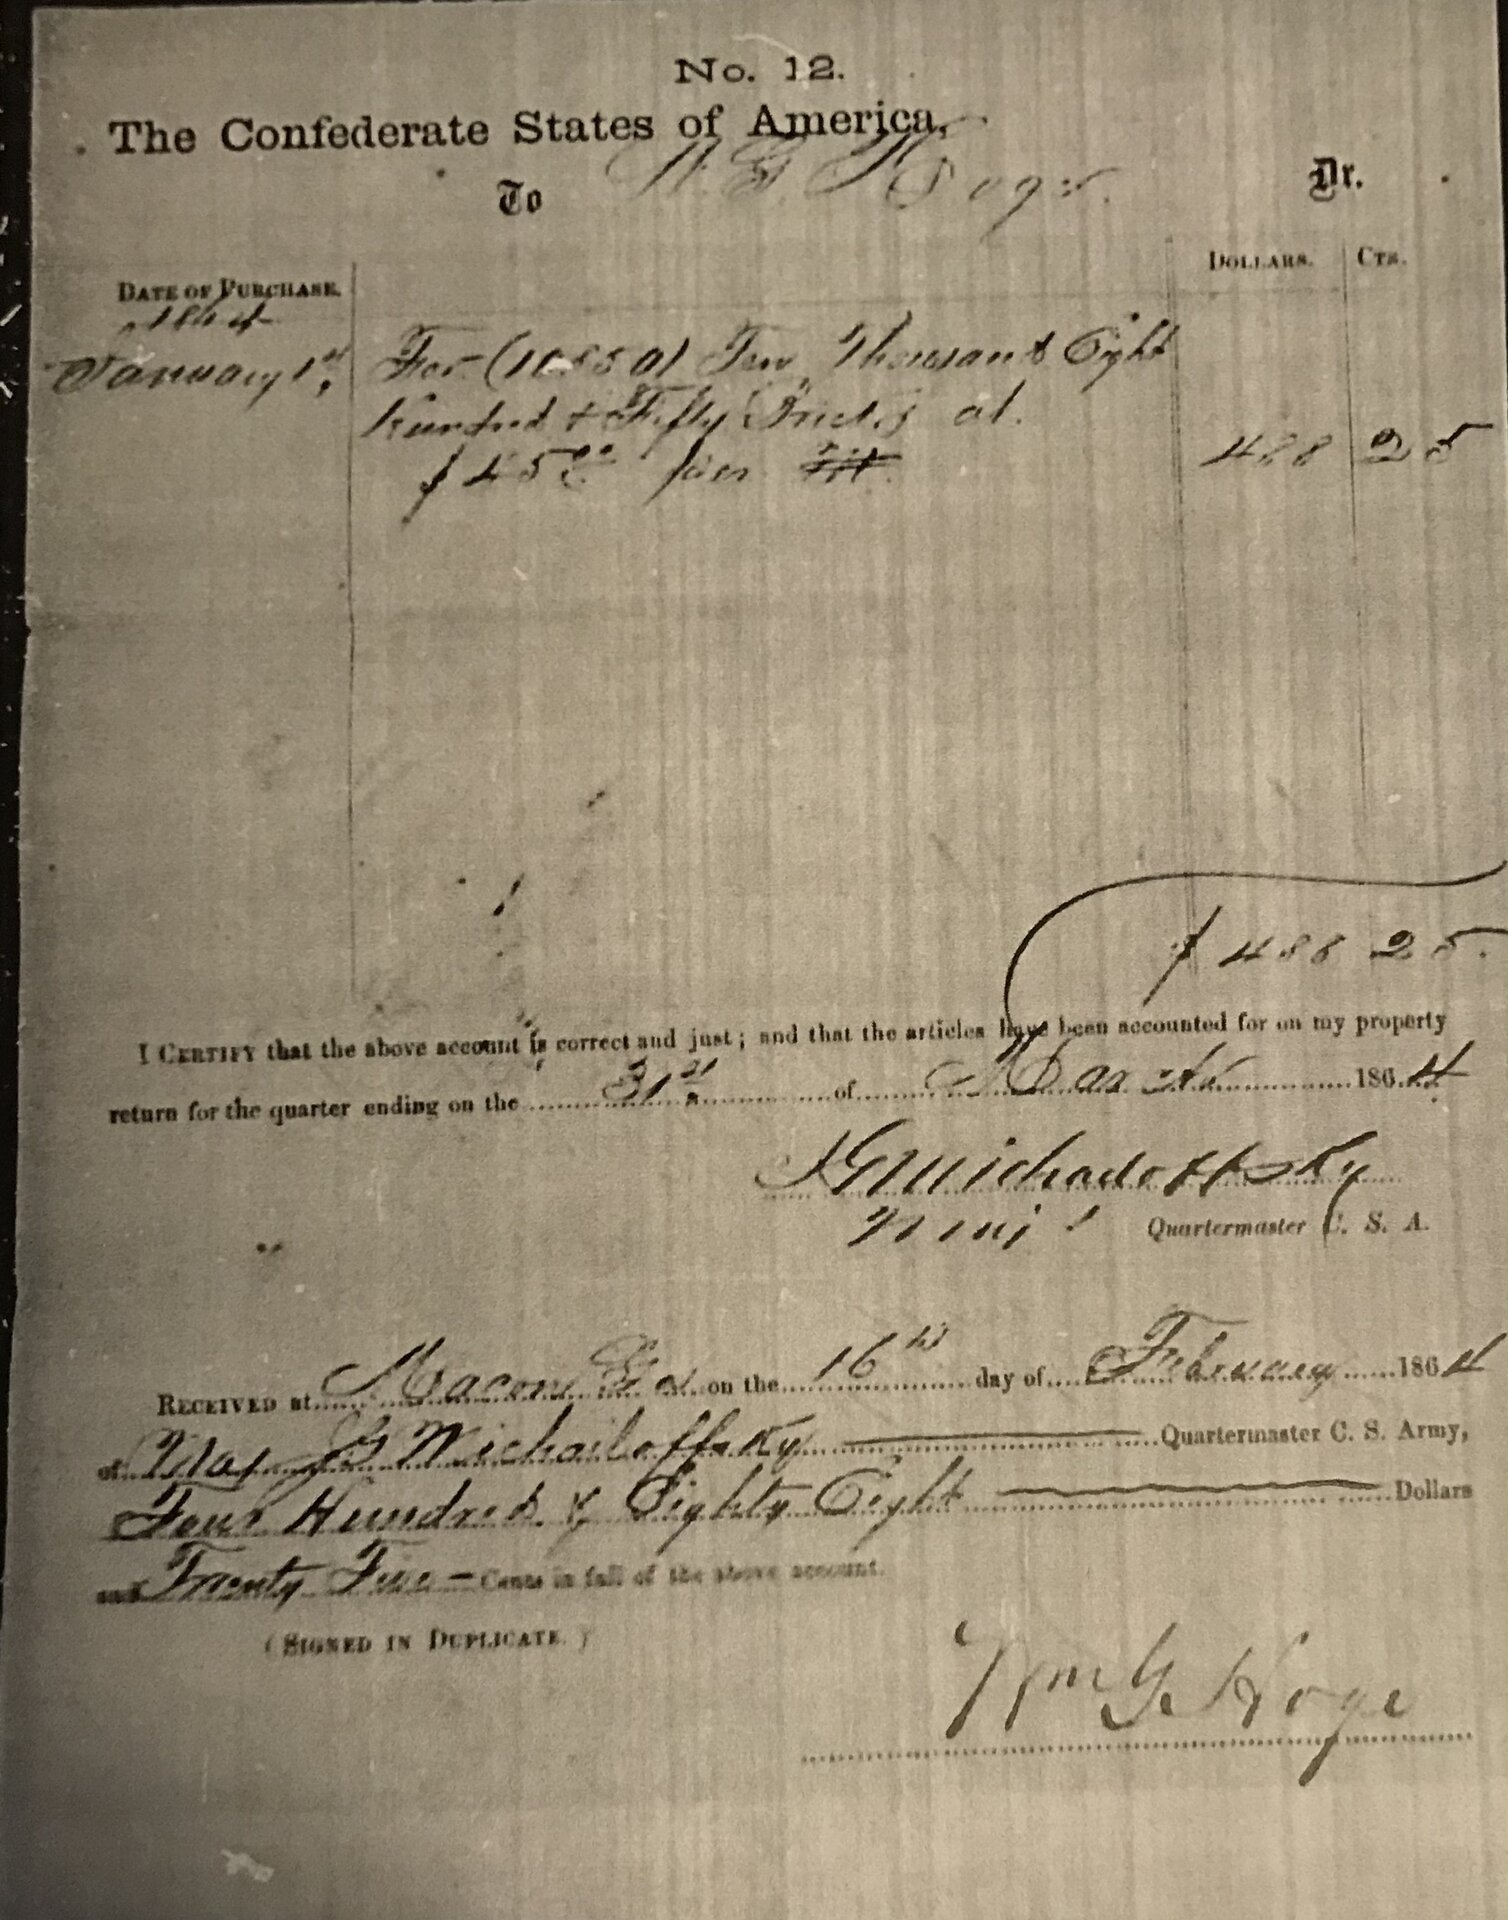 No. 12.
The Confederate States of America,
To W. G. Hoge Dr.
DATE OF PURCHASE. DOLLARS. CTS.
1864
January 1st, For (10850) Ten Thousand Eight
Hundred & Fifty Bricks at
$45.00 per M. 488 25
$ 488 25.
I CERTIFY that the above account is correct and just; and that the articles have been accounted for on my property
return for the quarter ending on the 31st of March 1864
J G Michailoffsky
Maj Quartermaster C. S. A.
RECEIVED at Macon Ga on the 16th day of February 1864
of Maj J G Michailoffsky Quartermaster C. S. Army,
Four Hundred & Eighty Eight Dollars
and Twenty Five Cents in full of the above account.
(SIGNED IN DUPLICATE.)
Wm G. Hoge